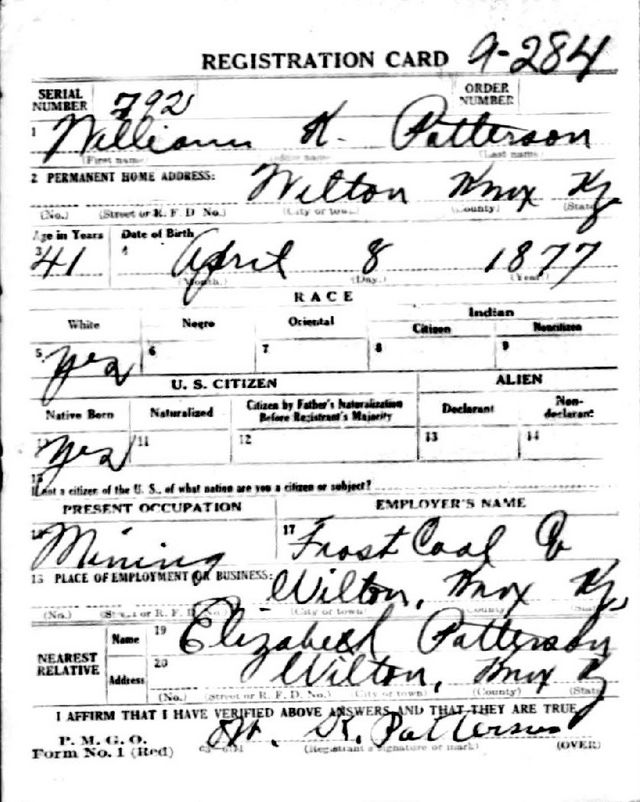 REGISTRATION CARD 9-284
SERIAL NUMBER 792 ORDER NUMBER
1 William K. Patterson
(First name) (Last name)
2 PERMANENT HOME ADDRESS: Wilton Knox Ky
(No.) (Street or R. F. D No.) (City or town) (County) (State)
Age in Years Date of Birth
3 41 4 April 8 1877
(Month.) (Day.) (Year.)
RACE
White Negro Oriental Indian
Citizen Noncitizen
5 yes 6 7 8 9
U. S. CITIZEN ALIEN
Native Born Naturalized Citizen by Father's Naturalization Before Registrant's Majority Declarant Non-declarant
10 yes 11 12 13 14
15
If not a citizen of the U. S., of what nation are you a citizen or subject?
PRESENT OCCUPATION EMPLOYER'S NAME
16 Mining 17 Frost Coal Co
18 PLACE OF EMPLOYMENT OR BUSINESS: Wilton, Knox Ky,
(No.) (Street or R. F. D No.) (City or town) (County) (State)
NEAREST RELATIVE Name 19 Elizabeth Patterson
Address 20 Wilton, Knox Ky
(No.) (Street or R. F. D. No.) (City or town) (County) (State)
I AFFIRM THAT I HAVE VERIFIED ABOVE ANSWERS AND THAT THEY ARE TRUE
P. M. G. O.
Form No. 1 (Red) Wm. K. Patterson
(Registrant's signature or mark) (OVER)